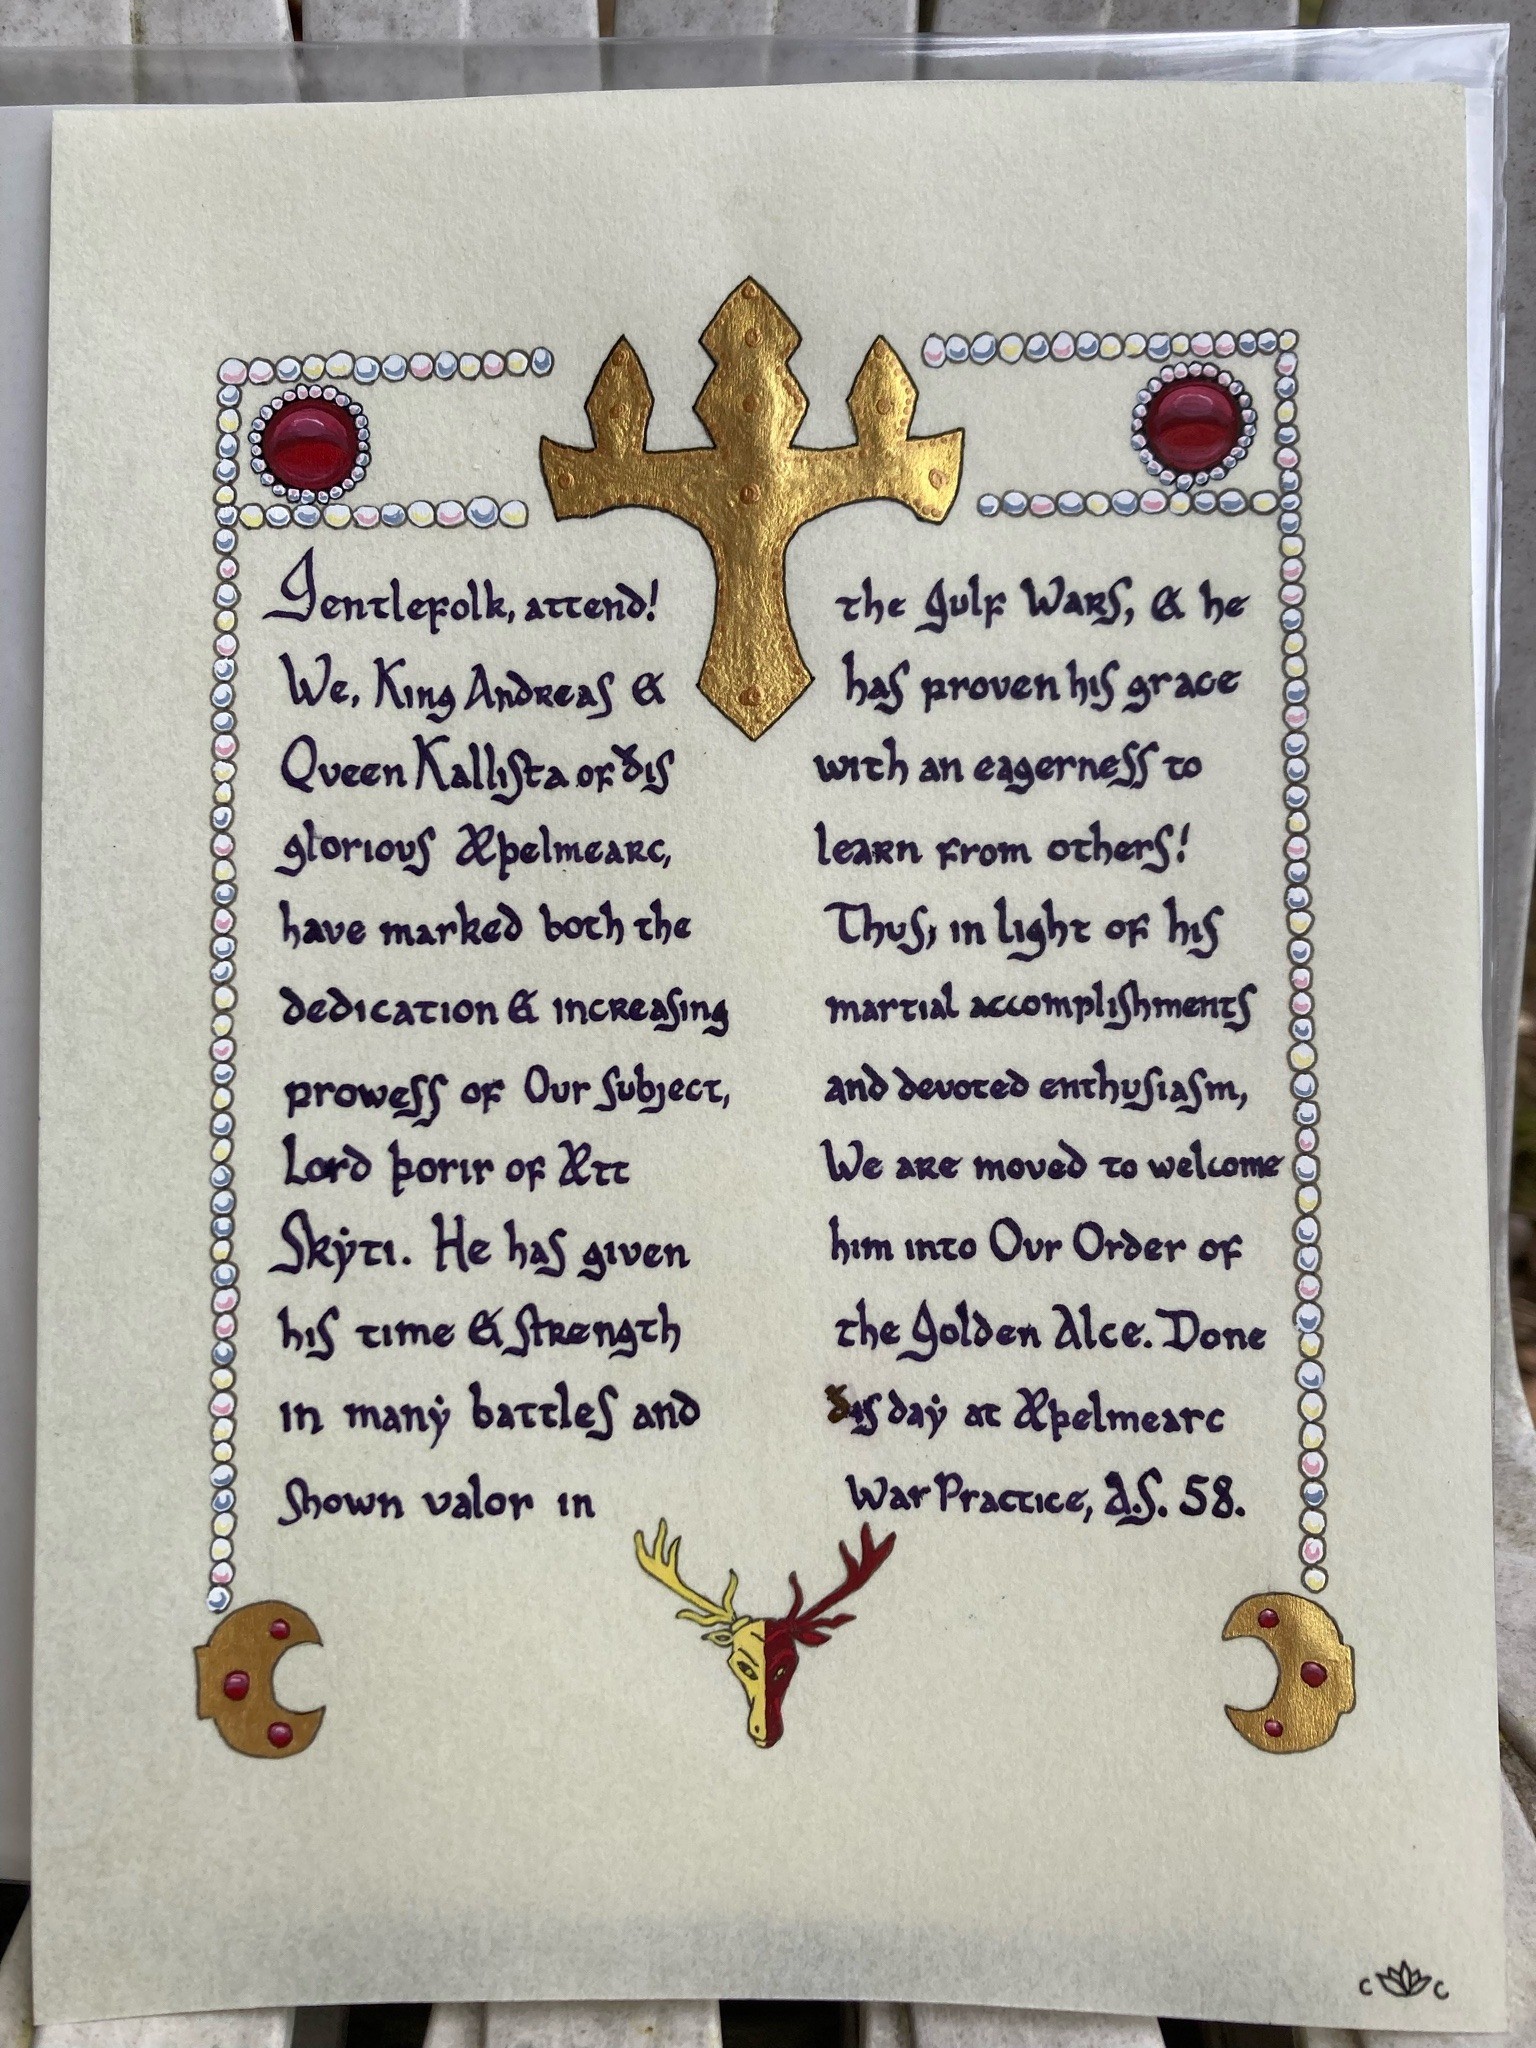 Gentlefolk, attend!
We, King Andreas &
Queen Kallista of ðis
glorious Æþelmearc,
have marked both the
dedication & increasing
prowess of Our subject,
Lord Þorir of Ætt
Skẏti. He has given
his time & strength
in manẏ battles and
shown valor in
the Gulf Wars, & he
has proven his grace
with an eagerness to
learn from others!
Thus, in light of his
martial accomplishments
and devoted enthusiasm,
We are moved to welcome
him into Our Order of
the Golden Alce. Done
ðis daẏ at Æþelmearc
War Practice, A.S. 58.
C C